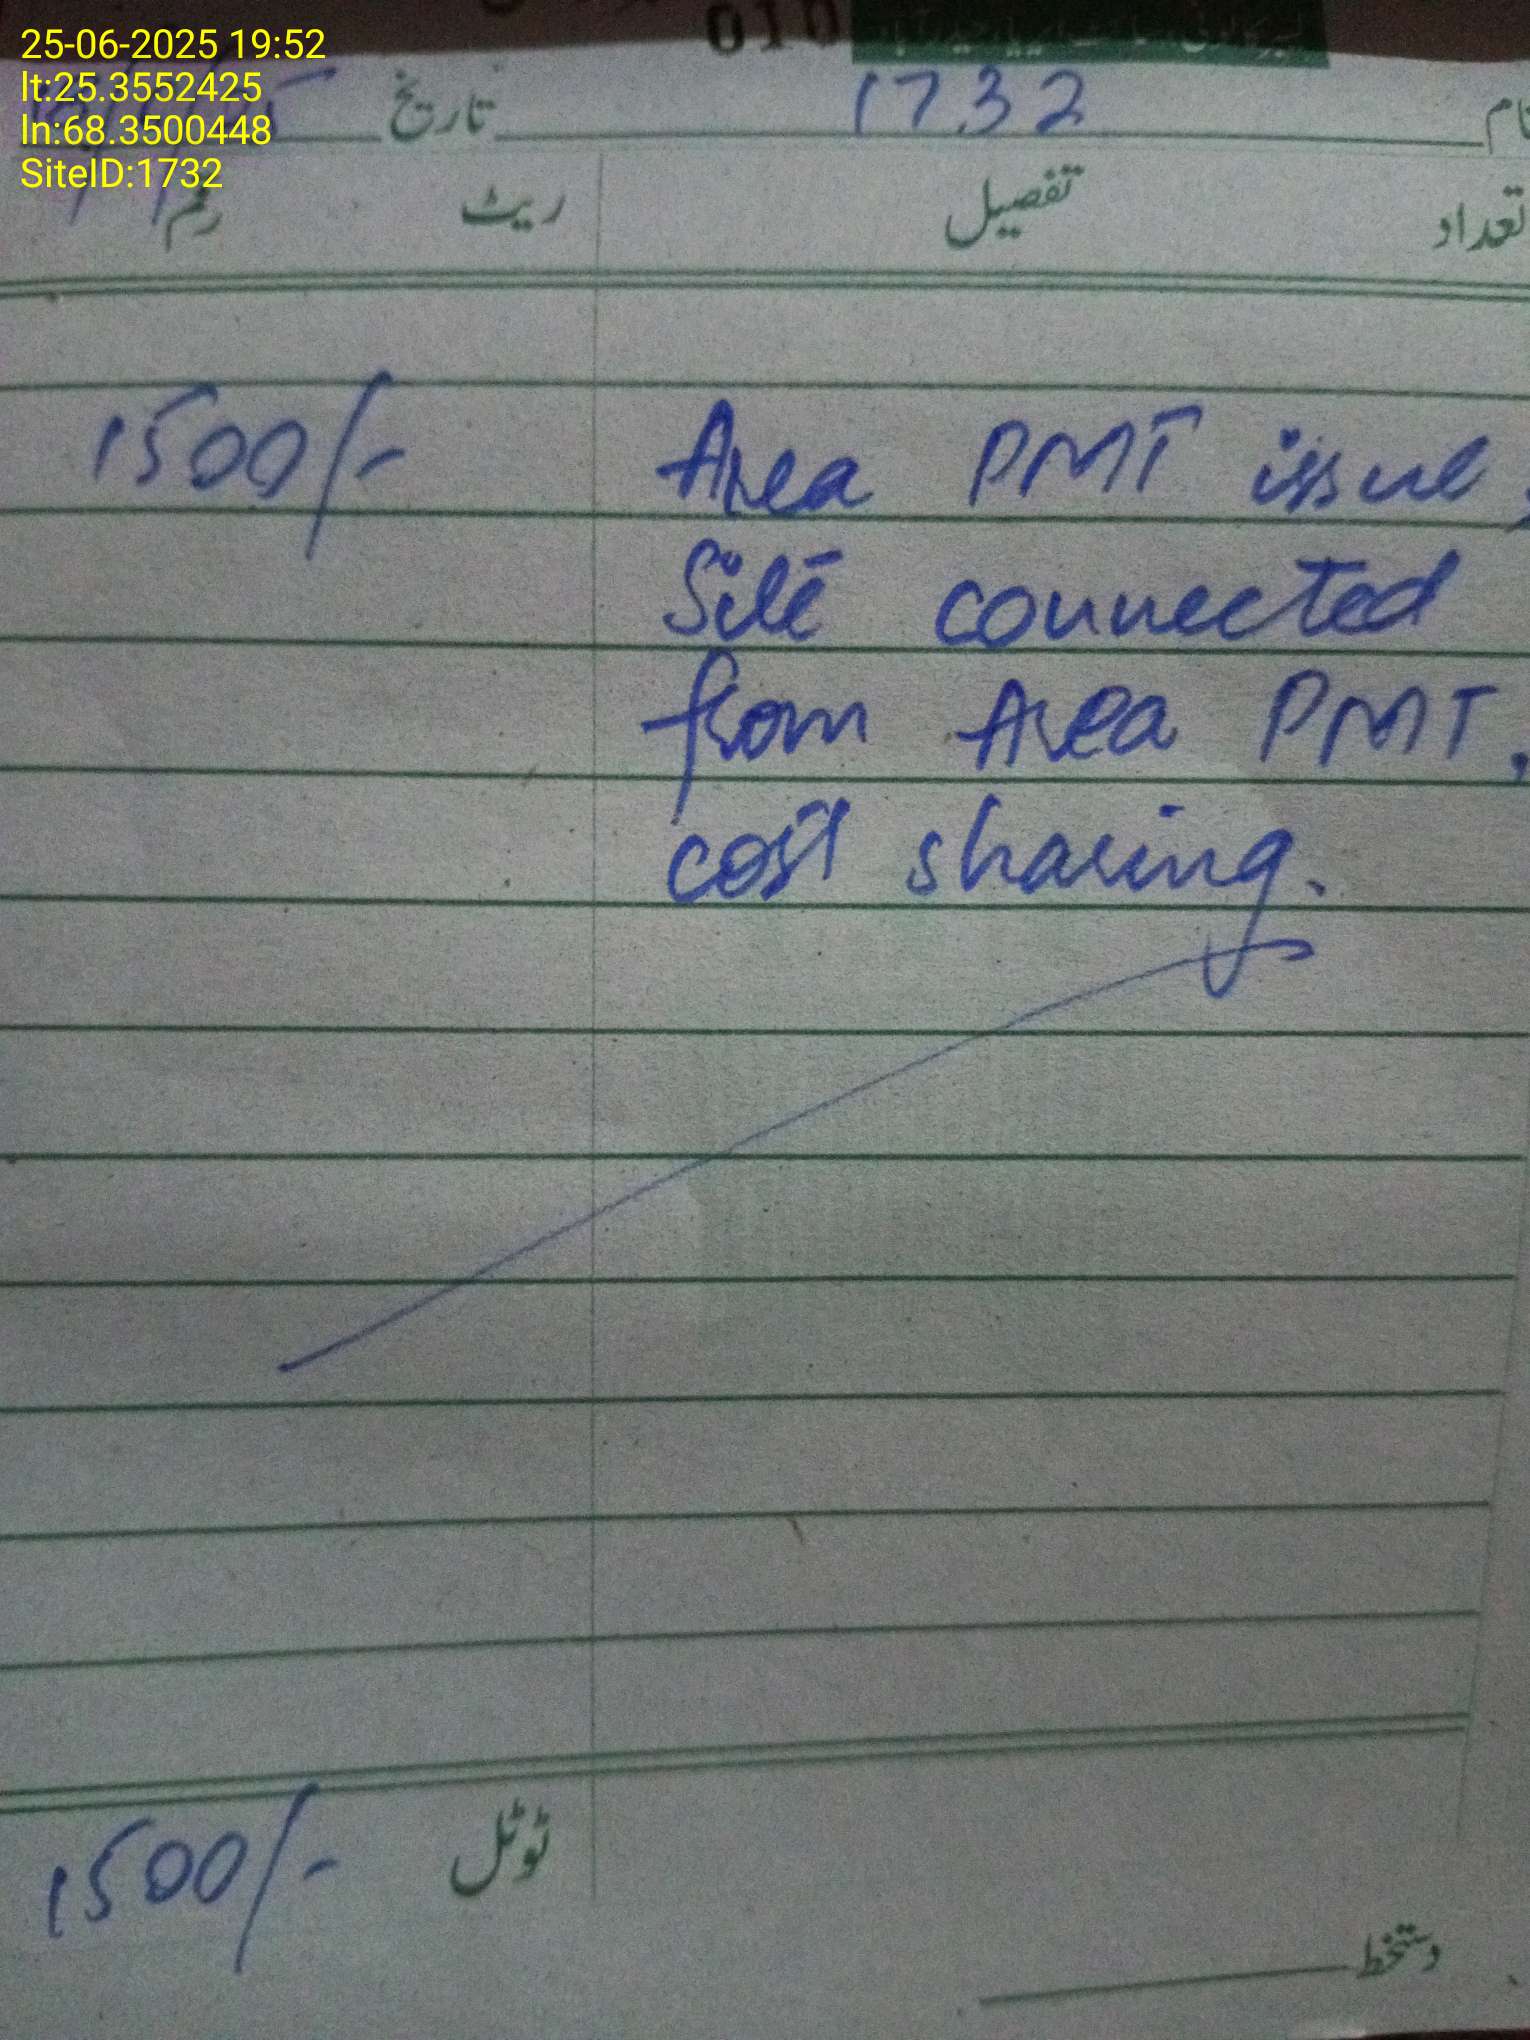 25-06-2025 19:52
lt:25.3552425
ln:68.3500448
SiteID:1732
010
نام 1732 تاریخ
تعداد تفصیل ریٹ رقم
Area PMT issue, 1500/-
Site connected
from Area PMT,
cost sharing.
ٹوٹل 1500/-
دستخط